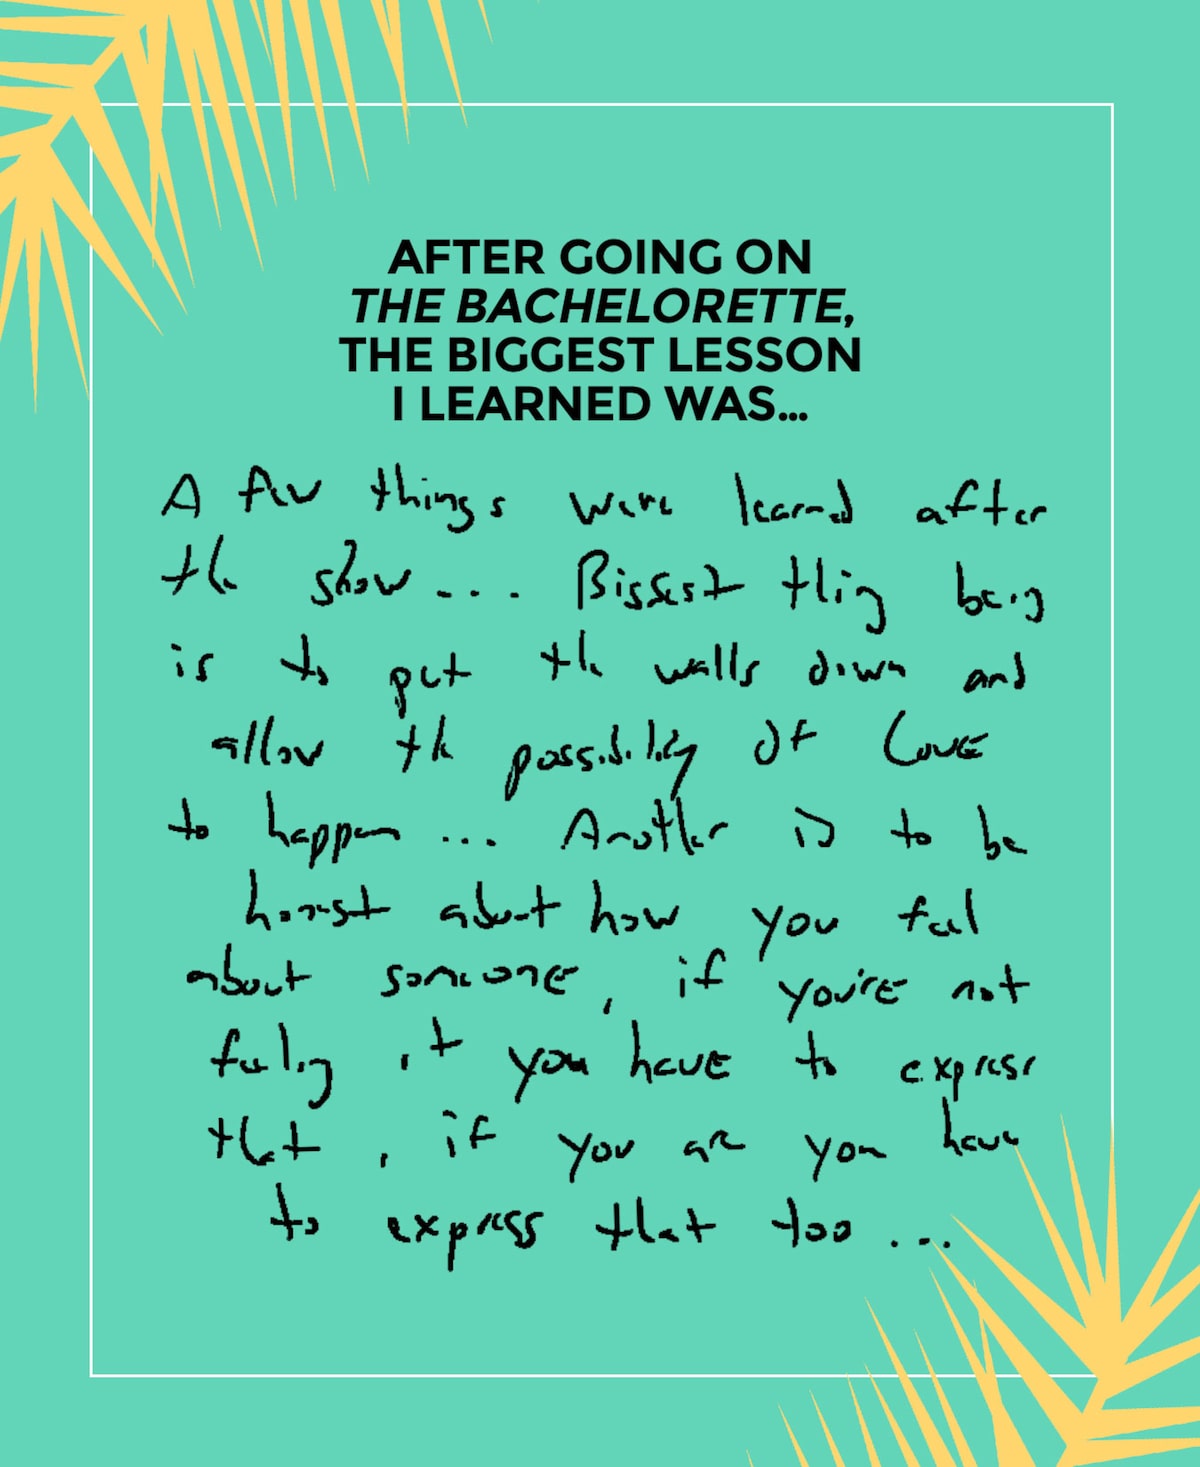 AFTER GOING ON
THE BACHELORETTE,
THE BIGGEST LESSON
I LEARNED WAS...
A few things were learned after
the show... Biggest thing being
is to put the walls down and
allow the possibility of Love
to happen... Another is to be
honest about how you feel
about someone, if you're not
feeling it you have to express
that, if you are you have
to express that too...